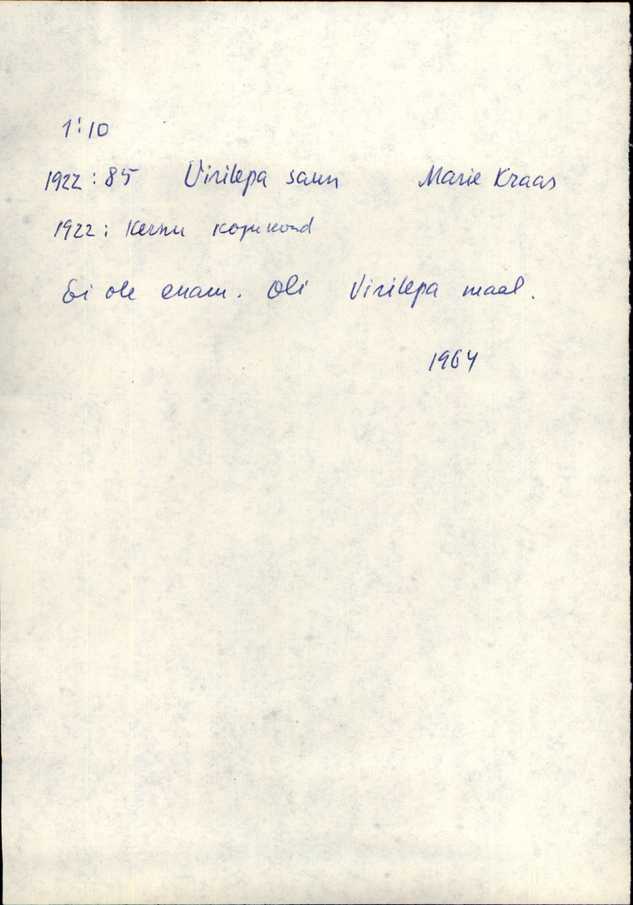 1:10
1922:85 Virilepa saun Marie Kraas
1922: Kernu kogukond
Ei ole enam. Oli Virilepa maal.
1964